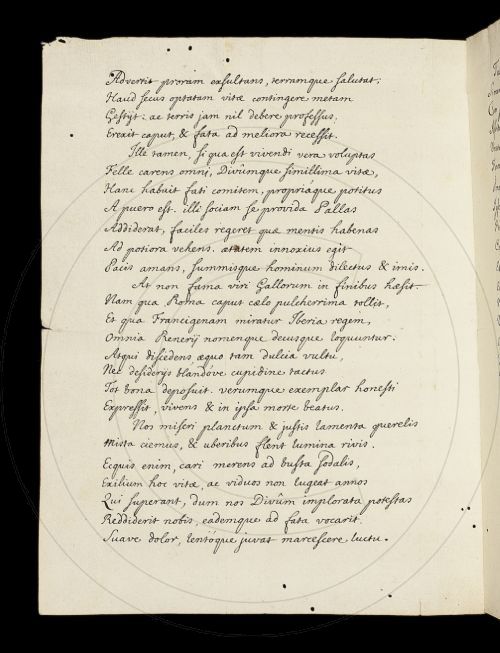 Advertit proram exsultans, terramque salutat;
Haud secus optatam vitæ contingere metam
Gestÿt: ac terris jam nil debere professus.
Erexit caput, & fata ad meliora recessit.
Ille tamen, si qua est vivendi vera voluptas
Felle carens omni, Divûmque simillima vitæ,
Hanc habuit fati comitem, propriáque potitus
A puero est. illi sociam se provida Pallas
Addiderat, faciles regeret quæ mentis habenas
Ad potiora vehens. ætatem innoxius egit
Pacis amans, summisque hominum dilectus & imis.
At non fama viri Gallorum in finibus hæsit
Nam qua Roma caput cælo pulcherrima tollit,
Et qua Francigenam miratur Iberia regem,
Omnia Renerÿ nomenque decusque loquuntur.
Atqui discedens æquo tam dulcia vultu,
Nec desiderÿs blandóve cupidine tactus
Tot bona deposuit. verumque exemplar honesti
Expressit, vivens & in ipsa morte beatus.
Nos miseri planctum & justis lamenta querelis
Mista ciemus, & uberibus flent lumina rivis.
Ecquis enim, cari merens ad busta sodalis,
Exilium hoc vitæ, ac viduos non lugeat annos
Qui superant, dum nos Divûm implorata potestas
Reddiderit nobis, eademque ad fata vocarit.
Suave dolor, lentóque juvat marcescere luctu.